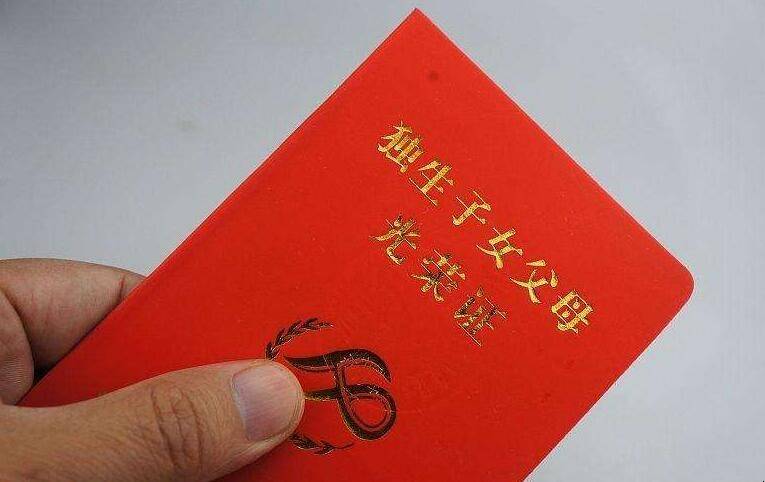 独生子女父母
光荣证